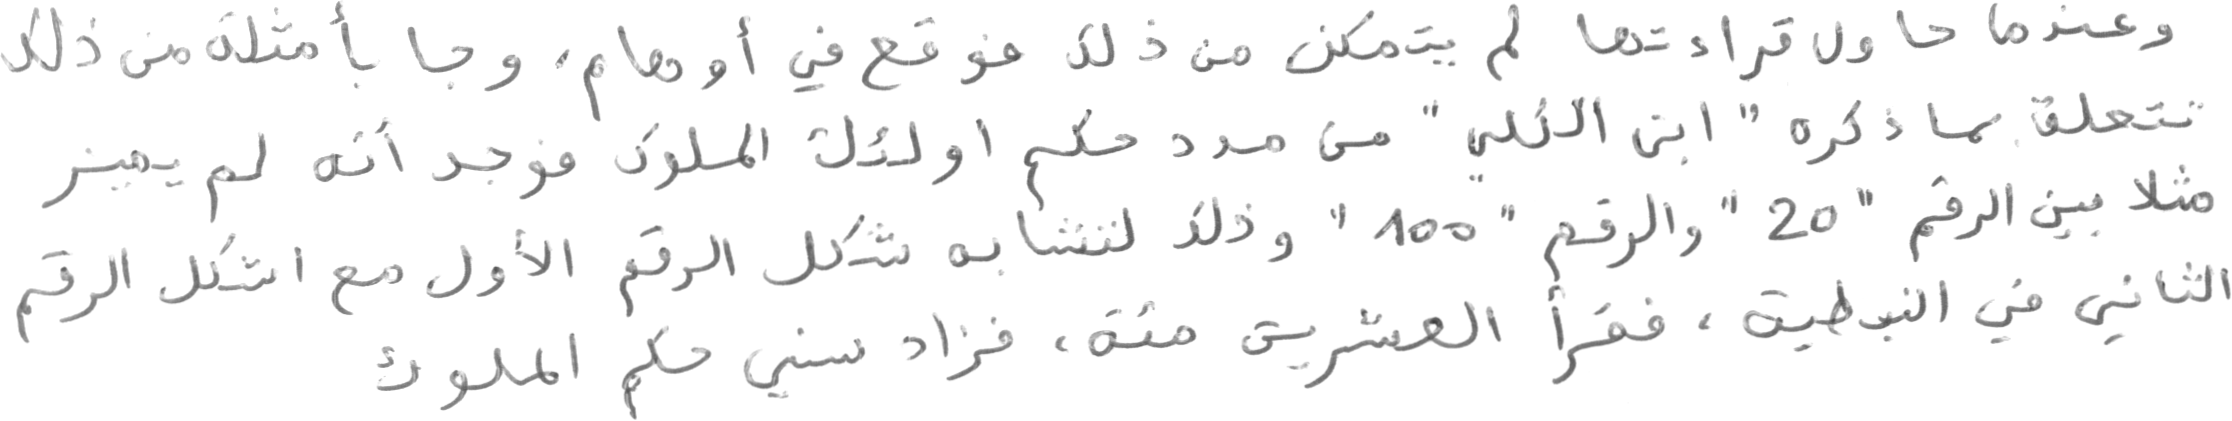 وعندما حاول قراءتها لم يتمكن من ذلك فوقع في أوهام، وجا بأمثلة من ذلك
تتعلق بما ذكره "ابن الكلبي" من مدد حكم اولئك الملوك فوجد أنه لم يميز
مثلا بين الرقم "20" والرقم "100" وذلك لتشابه شكل الرقم الأول مع اشكل الرقم
الثاني في النبطية، فقرأ العشرين مئة، فزاد سني حكم الملوك